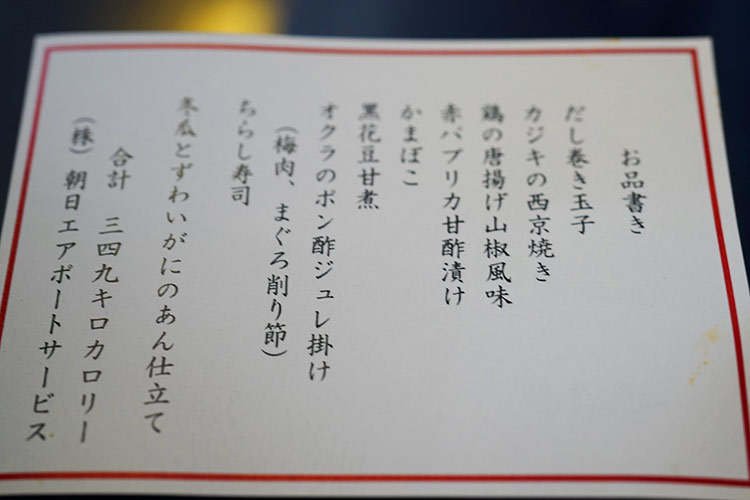 お品書き
だし巻き玉子
カジキの西京焼き
鶏の唐揚げ山椒風味
赤パプリカ甘酢漬け
かまぼこ
黒花豆甘煮
オクラのポン酢ジュレ掛け
(梅肉、まぐろ削り節)
ちらし寿司
冬瓜とずわいがにのあん仕立て
合計 三四九キロカロリー
(株) 朝日エアポートサービス